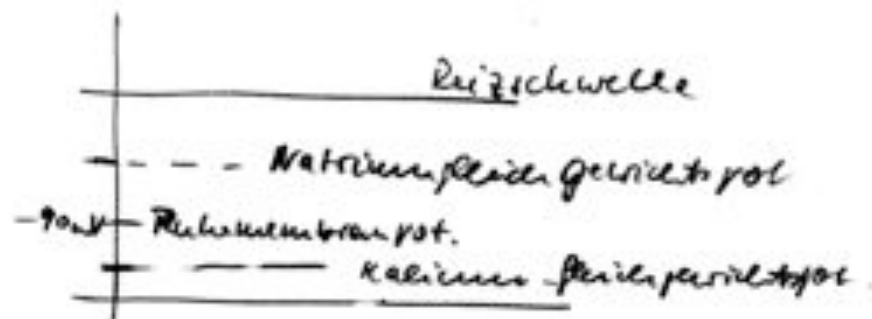 Reizschwelle
Natriumgleichgewichtspot
-90mV Ruhemembranpot.
Kalium-gleichgewichtspot.